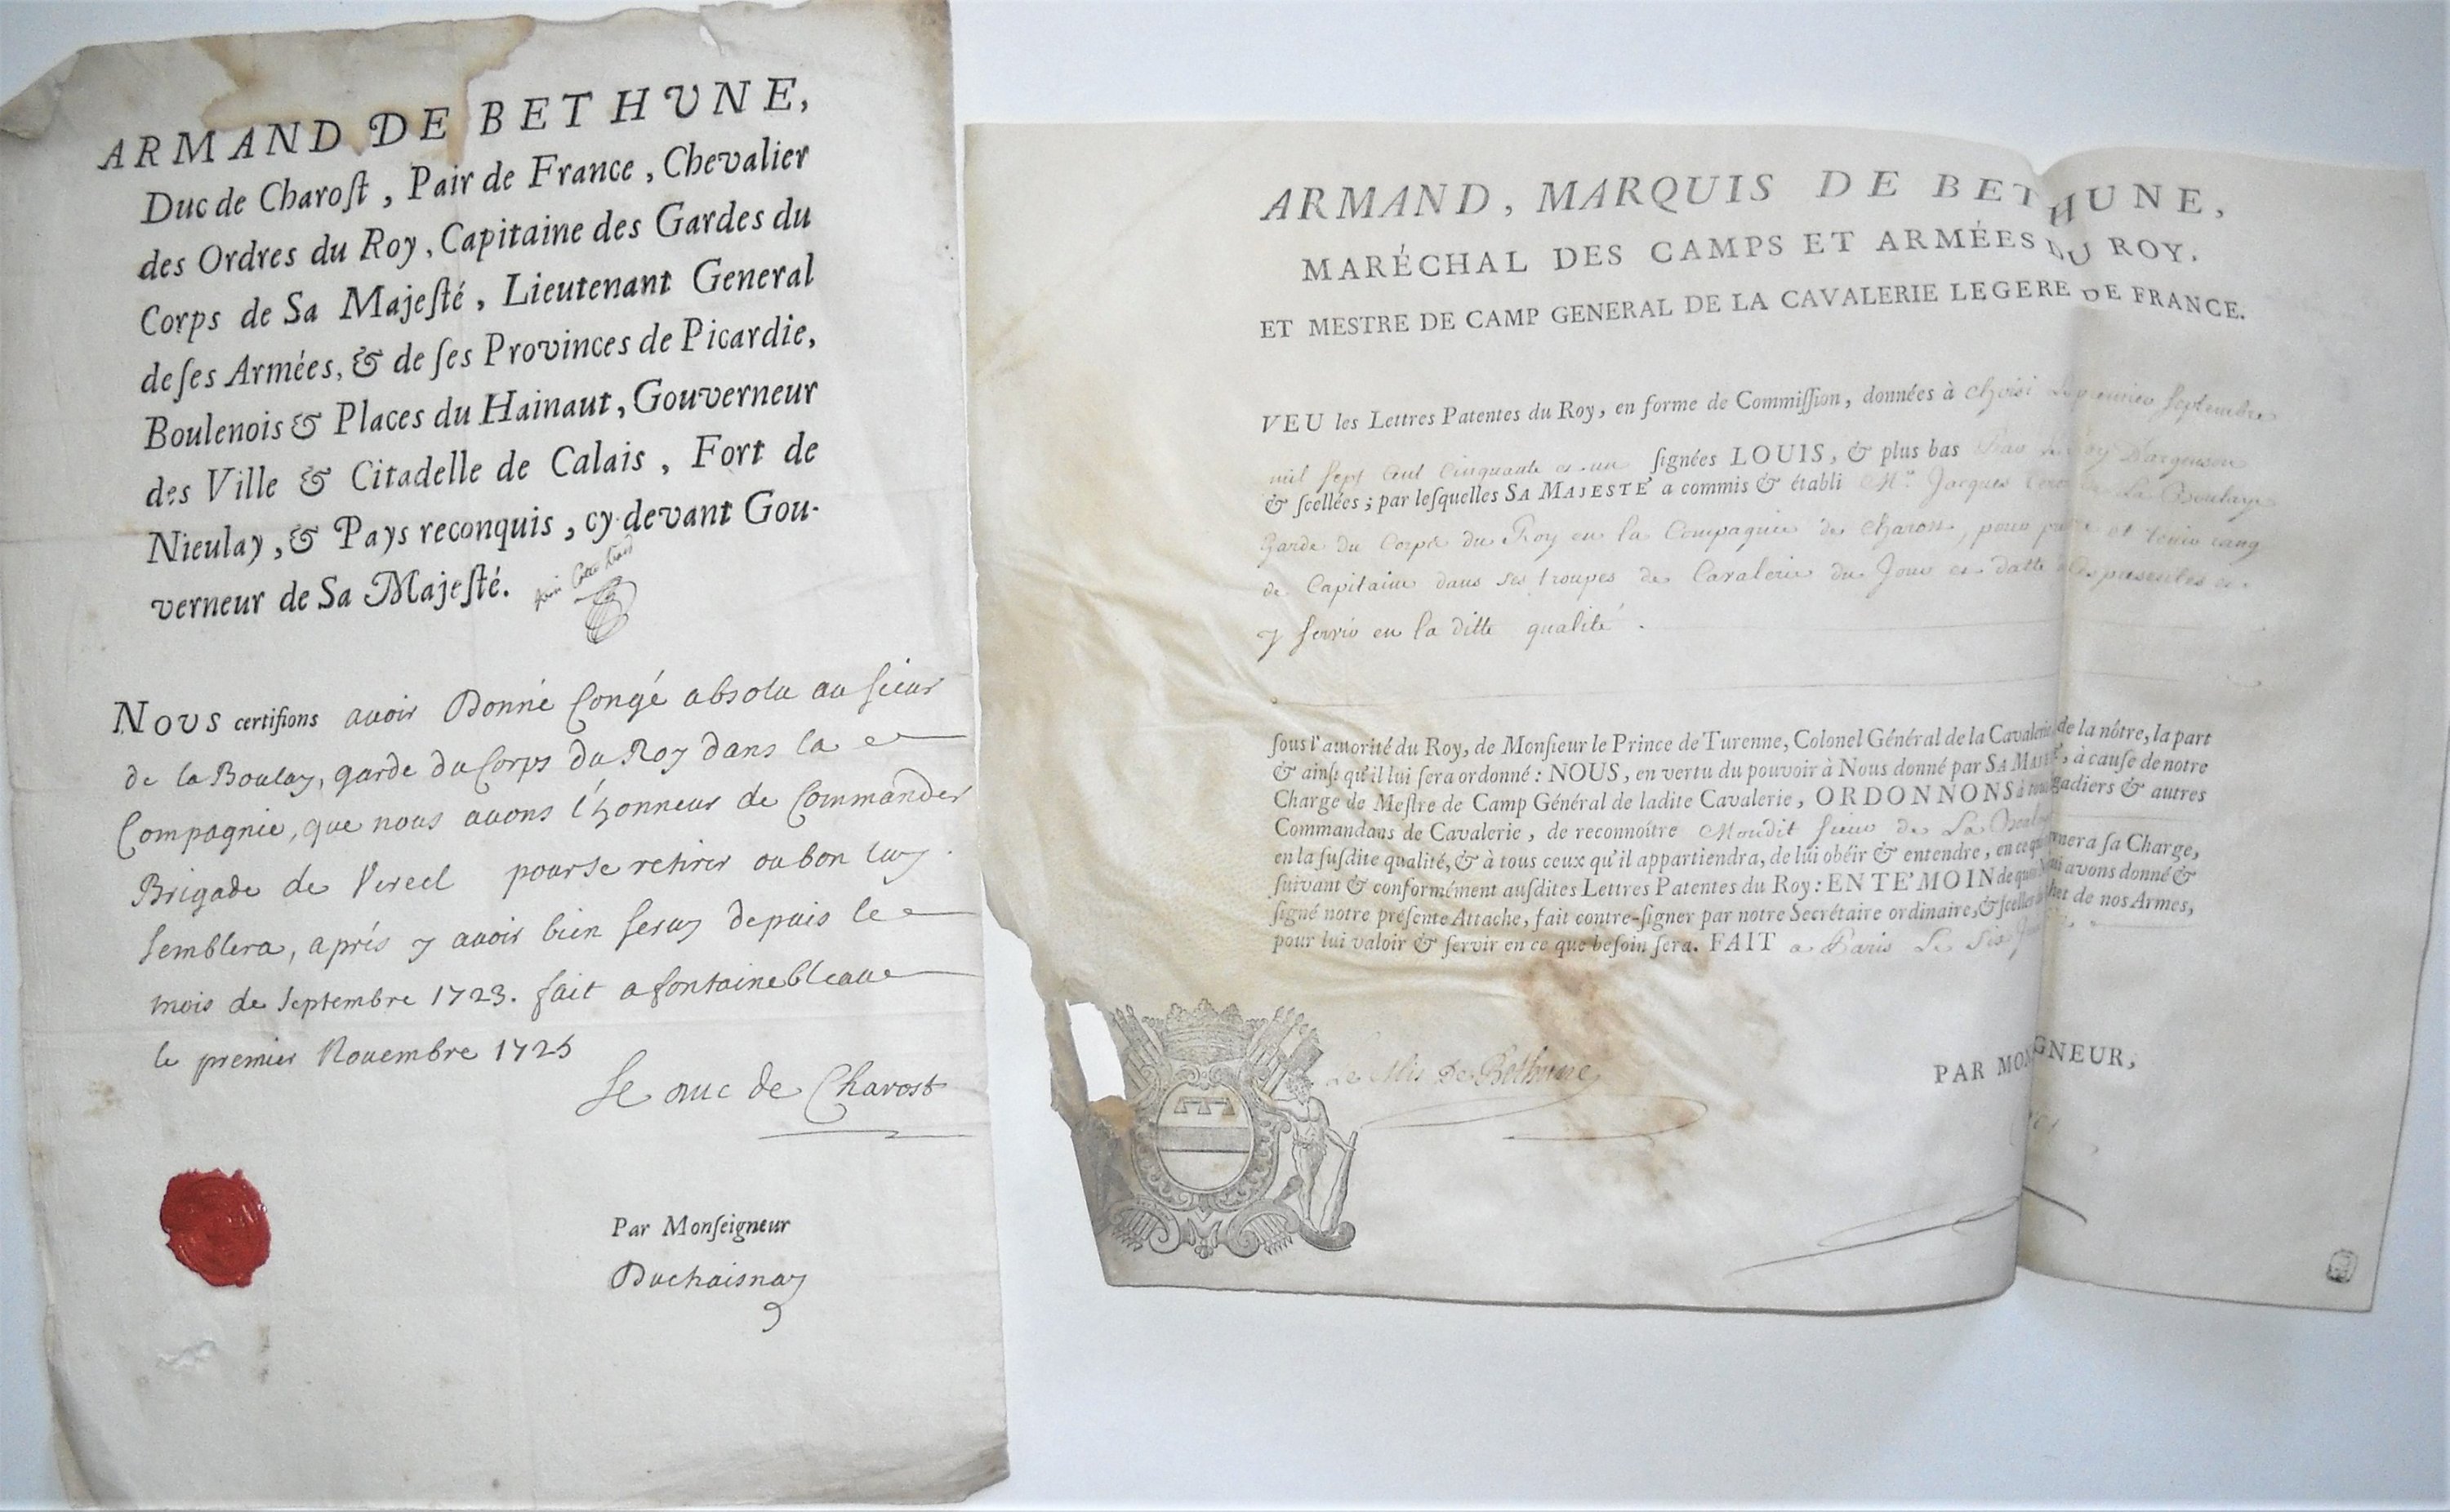 ARMAND DE BETHUNE,
Duc de Charoſt, Pair de France, Chevalier
des Ordres du Roy, Capitaine des Gardes du
Corps de Sa Majeſté, Lieutenant General
de ſes Armées, & de ſes Provinces de Picardie,
Boulenois & Places du Hainaut, Gouverneur
des Ville & Citadelle de Calais, Fort de
Nieulay, & Pays reconquis, cy-devant Gou-
verneur de Sa Majeſté.
NOUS certifions avoir Donné Congé absolu au sieur
de la Boulay, garde du Corps du Roy dans la
Compagnie, que nous avons l'honneur de Commander
Brigade de Vereel pour se retirer ou bon luy
semblera, aprés y avoir bien servy depuis le
mois de Septembre 1723. fait a fontainebleaue
le premier Novembre 1725
Le Duc de Charost
Par Monſeigneur
Duchaisnay
ARMAND, MARQUIS DE BETHUNE,
MARÉCHAL DES CAMPS ET ARMÉES DU ROY,
ET MESTRE DE CAMP GENERAL DE LA CAVALERIE LEGERE DE FRANCE.
VEU les Lettres Patentes du Roy, en forme de Commiſſion, données à Choisi Le premier Septembre
mil sept Cent Cinquante et un ſignées LOUIS, & plus bas Par le Roy D'argenson
& ſcellées; par leſquelles SA MAJESTÉ a commis & établi Mre Jacques de La Boulaye
Garde du Corps du Roy en la Compagnie de Charost, pour prendre et tenir rang
de Capitaine dans ses troupes de Cavalerie du Jour et datte des presentes et
y servir en la ditte qualité.
ſous l'autorité du Roy, de Monſieur le Prince de Turenne, Colonel Général de la Cavalerie de la nôtre, la part
& ainſi qu'il lui ſera ordonné: NOUS, en vertu du pouvoir à Nous donné par SA MAJESTÉ, à cauſe de notre
Charge de Meſtre de Camp Général de ladite Cavalerie, ORDONNONS à tous Brigadiers & autres
Commandans de Cavalerie, de reconnoître Moudit sieur de La Boulaye
en la ſuſdite qualité, & à tous ceux qu'il appartiendra, de lui obéir & entendre, en ce qui concernera ſa Charge,
ſuivant & conformément auſdites Lettres Patentes du Roy: EN TÉMOIN de quoi Nous avons donné &
ſigné notre préſente Attache, fait contre-ſigner par notre Secrétaire ordinaire, & ſceller du cachet de nos Armes,
pour lui valoir & ſervir en ce que beſoin ſera. FAIT a Paris Le Six
Le Mis De Bethune
PAR MONSEIGNEUR,